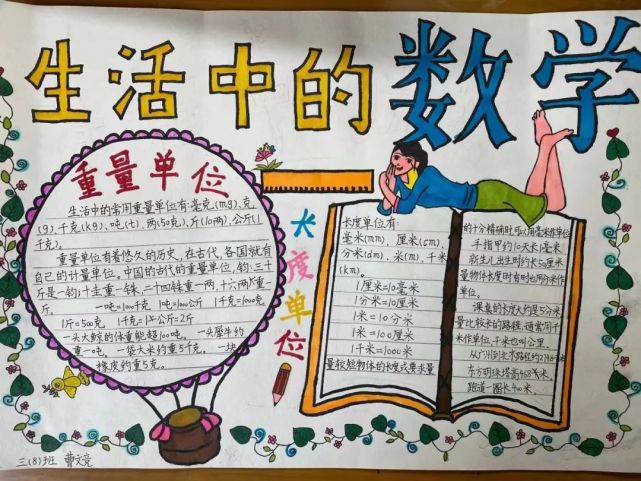 生活中的数学
重量单位
生活中的常用重量单位有:毫克(mg)、克
(g)、千克(kg)、吨(t)、两(50克)、斤(10两)、公斤(1
千克)。
重量单位有着悠久的历史,在古代,各国就有
自己的计量单位。中国的古代的重量单位,钧:三十
斤是一钧;十圭重一铢,二十四铢重一两,十六两重一
斤。 一吨=1000千克 1吨=1000公斤 1千克=1000克
1斤=500克 1千克=1公斤=2斤
一头大鲸的体重能超100吨。 一头犀牛约
重一吨。 一袋大米约重5千克。 一块
橡皮约重5克。
长度单位
长度单位有:
毫米(mm)、厘米(cm)、
分米(dm)、米(m)、千米
(km)。
1厘米=10毫米
1分米=10厘米
1米=10分米
1米=100厘米
1千米=1000米
量较短物体的长度或要求量
的十分精确时,可以用毫米作单位
手指甲约10天长1毫米
新生儿出生时约长5厘米
量物体长度时有时也用分米作
单位。
课桌的长度大约是5分米
量比较长的路程,通常用千
米作单位,千米也叫公里。
东方明珠塔高468米。
跑道一圈长400米。
三(8)班 曹文竞